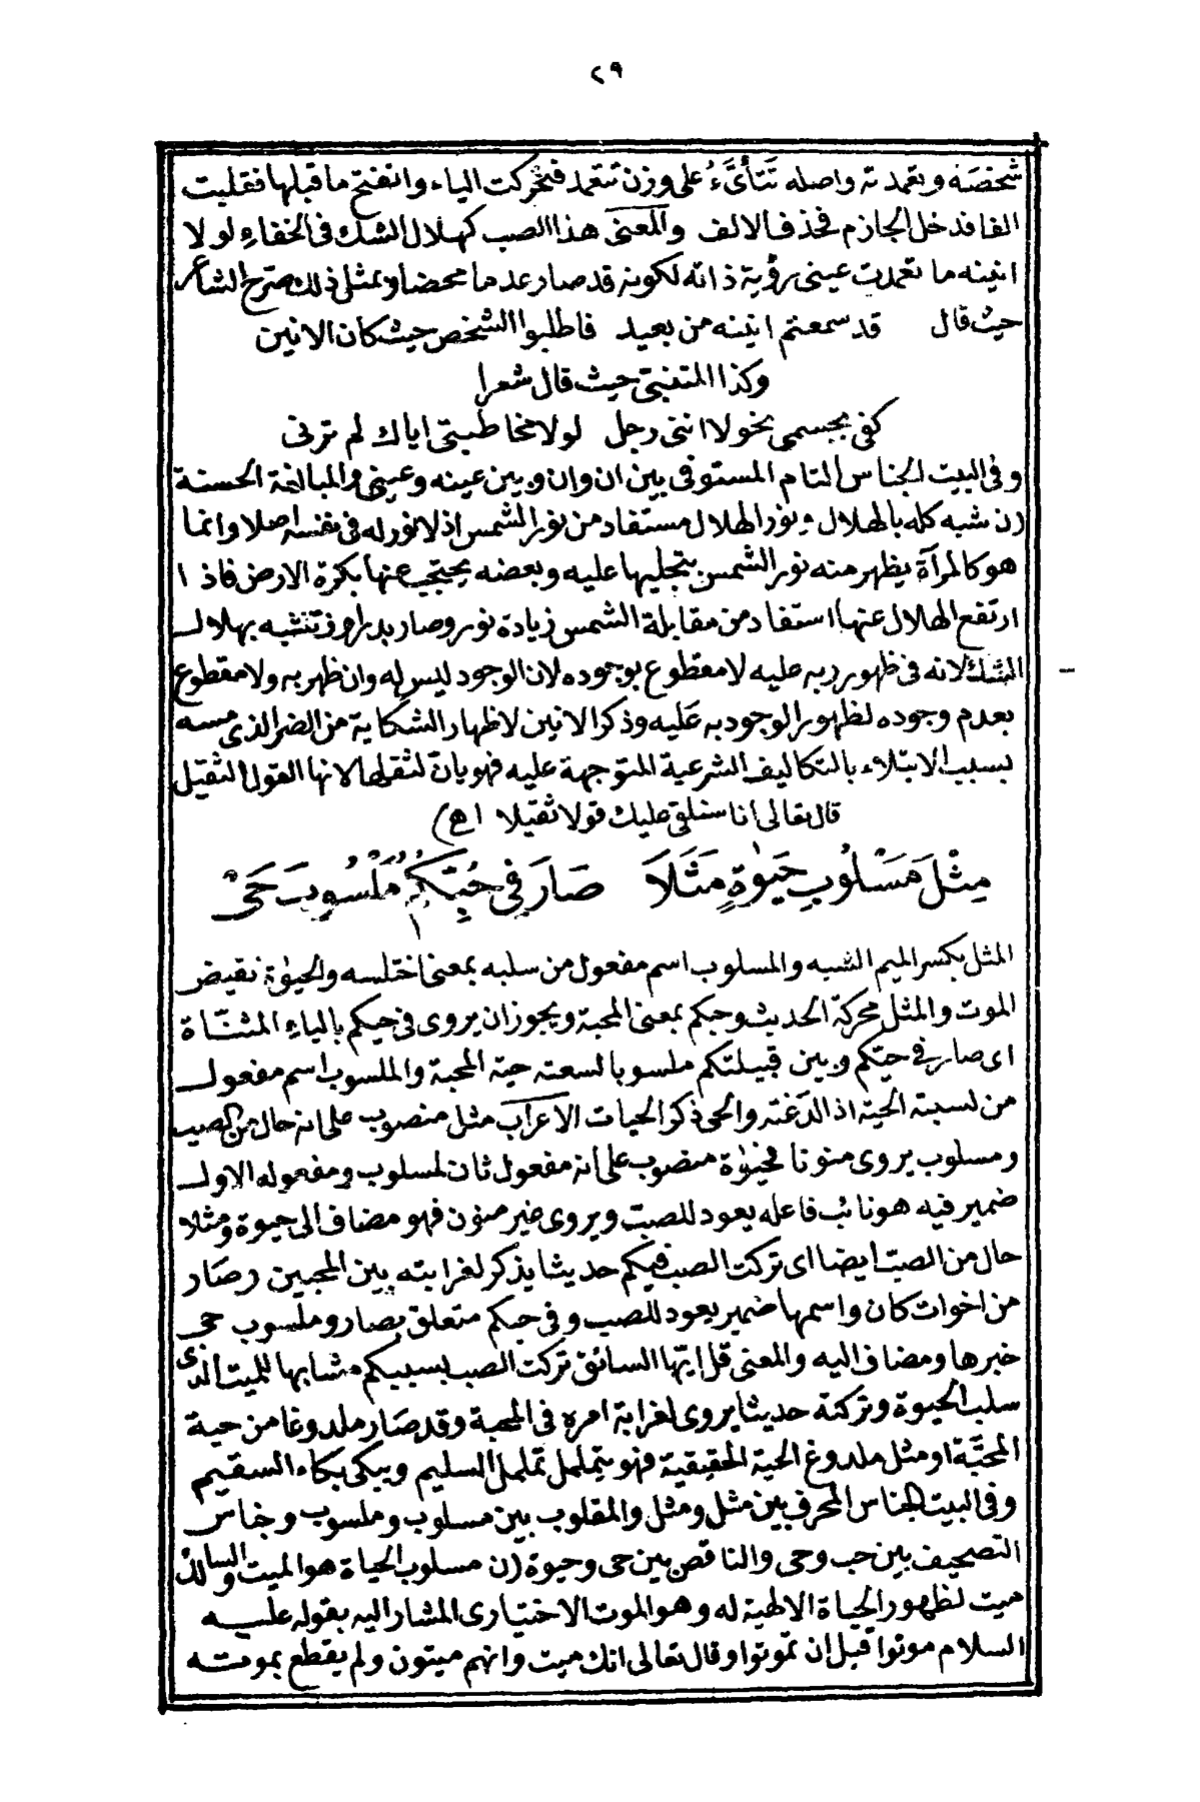 ٢٩
شخصته وتعمدته واصله تَتَأَيَّءُ على وزن تتعمد فتحركت الياء وانفتح ما قبلها فقلبت
الفا فدخل الجازم فحذف الالف والمعنى هذا الصب كهلال الشك فى الخفاء لولا
انينه ما تعمدت عينى رؤية ذاته لكونه قد صار عدما محضا وبمثل ذلك صرح الشاعر
حيث قال قد سمعتم انينه من بعيد فاطلبوا الشخص حيث كان الانين
وكذا المتنبى حيث قال شعرا
كفى بجسمى نحولا اننى رجل لولا مخاطبتى اياك لم ترنى
وفى البيت الجناس التام المستوفى بين ان وان وبين عينه وعينى والمبالغة الحسنة
(ن شبه كله بالهلال ونور الهلال مستفاد من نور الشمس اذ لا نور له فى نفسه اصلا وانما
هو كالمرآة يظهر منه نور الشمس بتجليها عليه وبعضه يحتجب عنها بكرة الارض فاذا
ارتفع الهلال عنها استفاد من مقابلة الشمس زيادة نور وصار بدرا وتشبه بهلال
الشك لانه فى ظهور ربه عليه لا مقطوع بوجوده لان الوجود ليس له وان ظهر به ولا مقطوع
بعدم وجوده لظهور الوجود به عليه وذكر الانين لاظهار الشكاية من الضر الذى مسه
بسبب الابتلاء بالتكاليف الشرعية المتوجهة عليه فهو يان لثقلها لانها القول الثقيل
قال تعالى انا سنلقى عليك قولا ثقيلا اهـ)
مِثْلَ مَسْلُوبِ حَيَوٰةٍ مَثَلَا صَارَ فِى حُبِّكُمُ مَلْسُوبَ حَىْ
المثل بكسر الميم الشبه والمسلوب اسم مفعول من سلبه بمعنى اختلسه والحيوٰة نقيض
الموت والمثل محركة الحديث وحبكم بمعنى المحبة ويجوز ان يروى فى حيكم بالياء المثناة
اى صار فى حيّكم وبين قبيلتكم ملسوبا لسعته حية المحبة والملسوب اسم مفعول
من لسبته الحية اذا لدغته والحى ذكر الحيات الاعراب مثل منصوب على انه حال من الصب
ومسلوب يروى منونا فحيوٰة منصوب على انه مفعول ثان لمسلوب ومفعوله الاول
ضمير فيه هو نائب فاعله يعود للصب ويروى غير منون فهو مضاف الى حيوة ومثلا
حال من الصب ايضا اى تركت الصب فيكم حديثا يذكر لغرابته بين المحبين وصار
من اخوات كان واسمها ضمير يعود للصب وفى حبكم متعلق بصار وملسوب حى
خبرها ومضاف اليه والمعنى قل ايها السائق تركت الصب بسببكم مشابها للميت الذى
سلب الحيوة وتركته حديثا يروى لغرابة امره فى المحبة وقد صار ملدوغا من حية
المحبّة او مثل ملدوغ الحية الحقيقية فهو يتململ تململ السليم ويبكى بكاء السقيم
وفى البيت الجناس المحرف بين مثل ومثل والمقلوب بين مسلوب وملسوب وجناس
التصحيف بين حب وحى والناقص بين حى وحيوة (ن مسلوب الحياة هو الميت والسالك
ميت لظهور الحياة الالهية له وهو الموت الاختيارى المشار اليه بقوله عليه
السلام موتوا قبل ان تموتوا وقال تعالى انك ميت وانهم ميتون ولم يقطع بموته